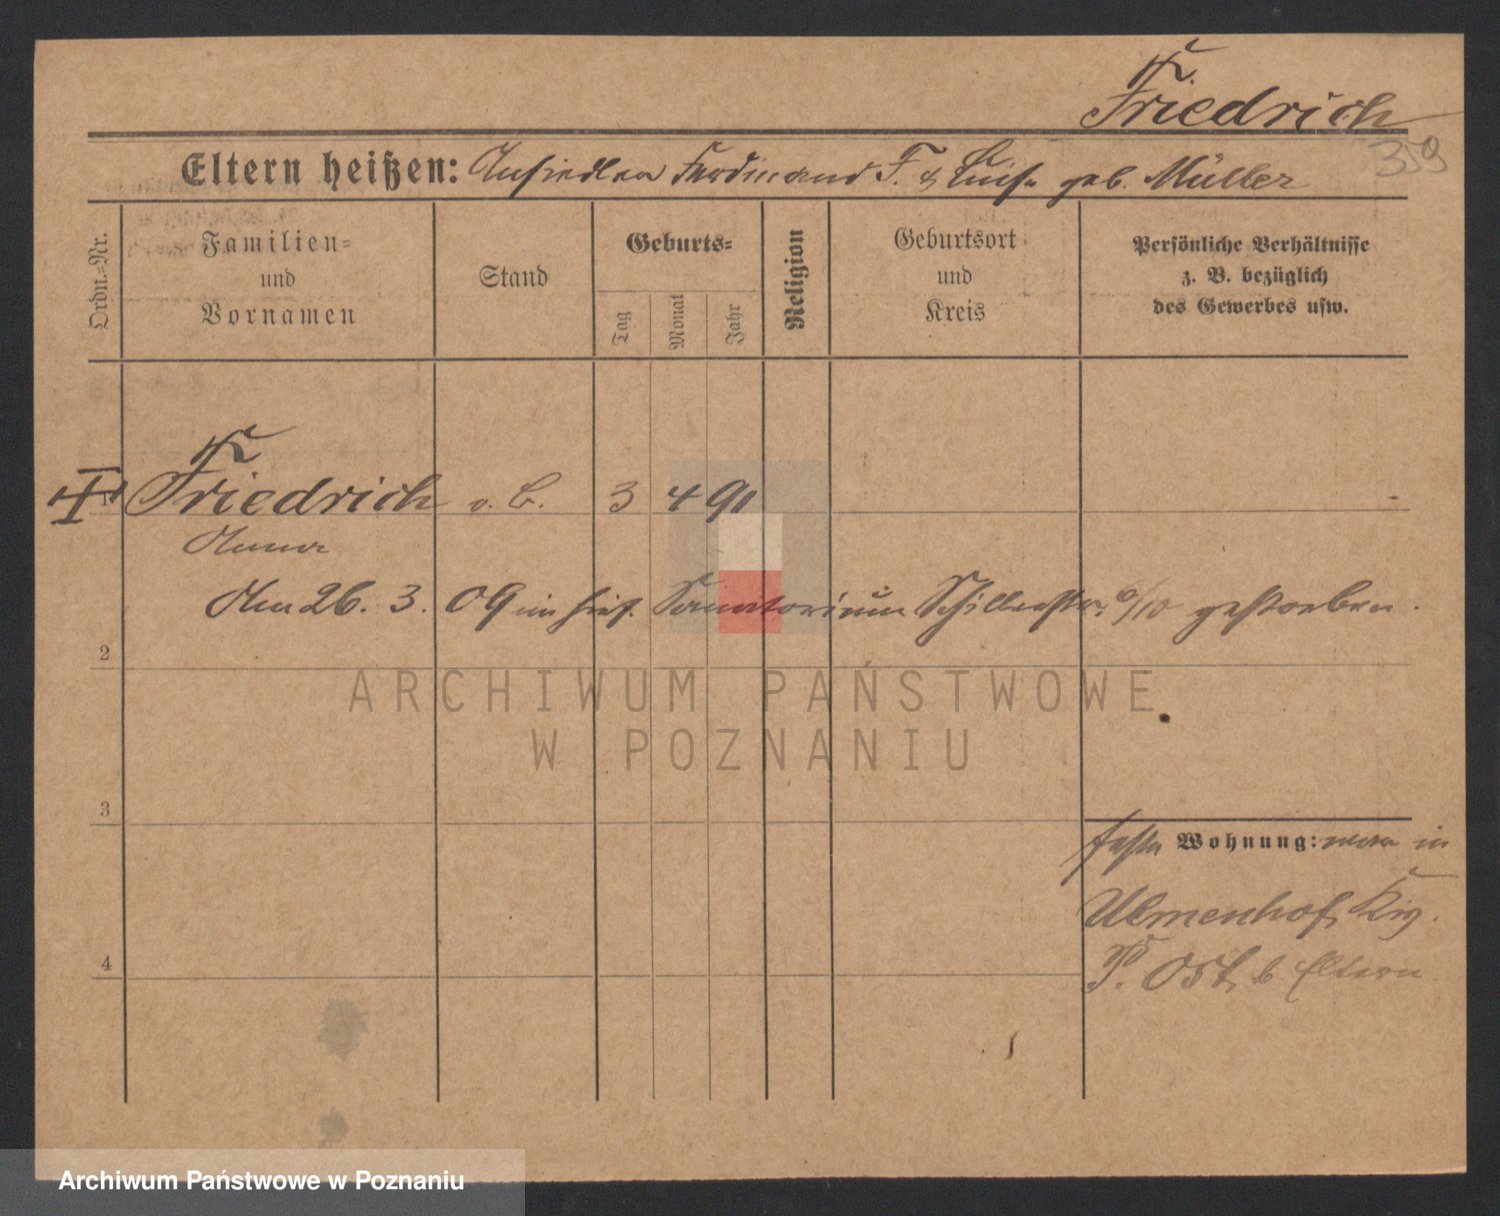 Friedrich
359
Eltern heißen: Ansiedler Ferdinand F. & Luise geb. Müller
Ordn.-Nr.
Familien-
und
Vornamen
Stand
Geburts-
Tag
Monat
Jahr
Religion
Geburtsort
und
Kreis
Persönliche Verhältnisse
z. B. bezüglich
des Gewerbes usw.
1 Friedrich o. B. 3 4 91
Anna
Am 26. 3. 09 im hies. Sanatorium Schillerstr. gestorben.
2
ARCHIWUM PAŃSTWOWE
W POZNANIU
3
feste Wohnung: war in
Ulmenhof, Krs.
P. Ost, b Eltern
4
Archiwum Państwowe w Poznaniu